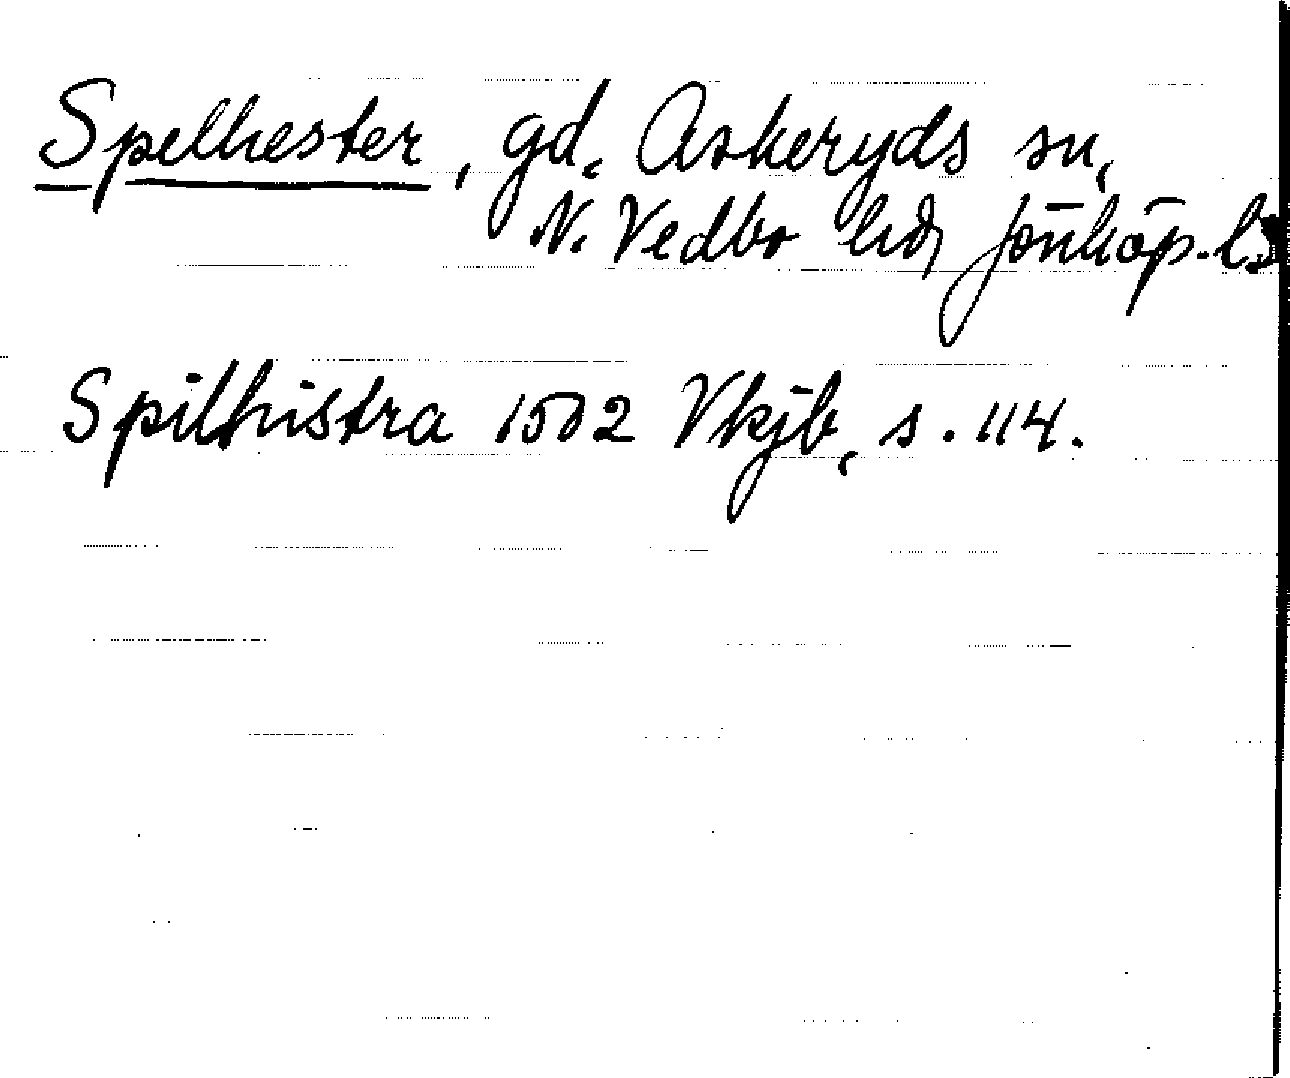 Spelhester, gd, Askeryds sn,
N. Vedbo hd, Jönköp. l.
Spilhistra 1502 Vkjb, s. 114.